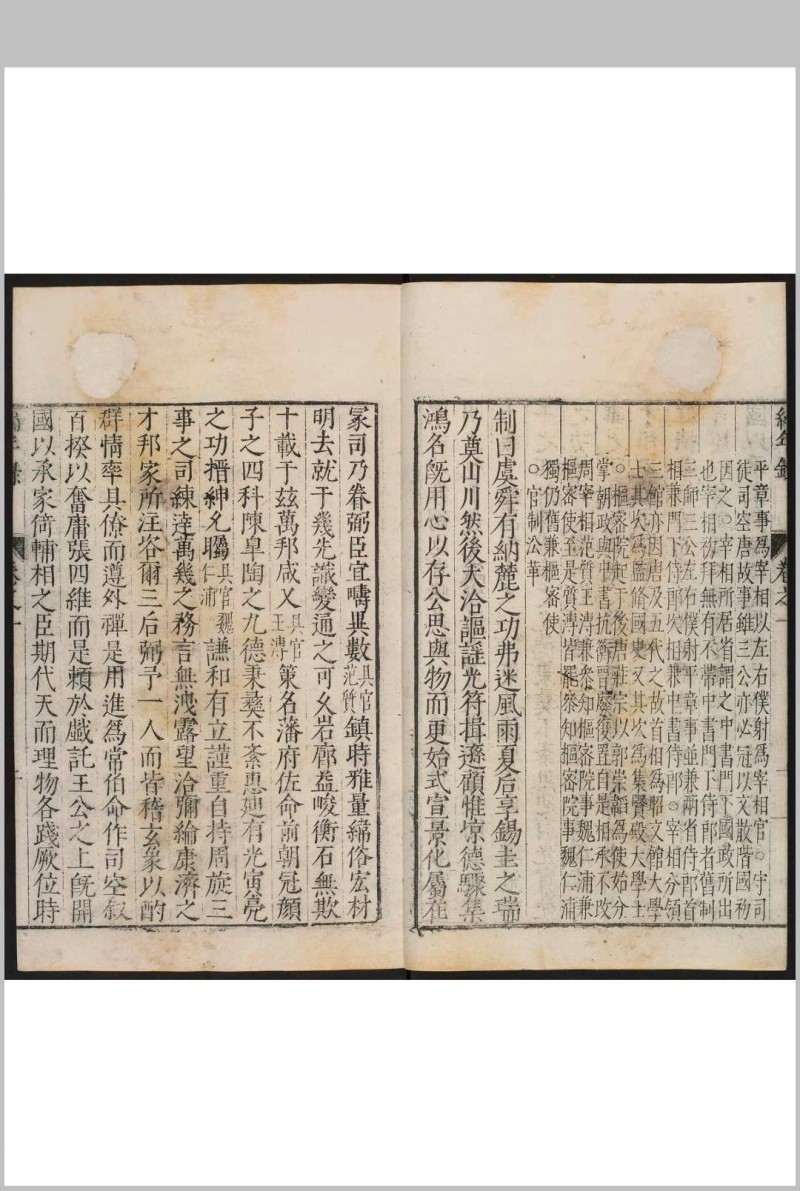 平章事爲宰相以左右僕射爲宰相官○宇司
徒司空唐故事雖三公亦必冠以文散階國初
因之○宰相所居者謂之中書門下國政所出
也宰相初拜無有不帶中書門下侍郎者舊制
三師三公左右僕射平章事並兼兩省侍郎首
相兼門下侍郎次相兼中書侍郎○宰相分領
三館亦因唐及五代之故首相爲昭文館大學
士其次爲監脩國史又其次爲集賢殿大學士
○樞密院起于後唐莊宗以郭崇韜爲使始分
掌朝政與中書抗衡晉廢復置自是相承不改
周宰相范質王溥兼參知樞密院事魏仁浦兼
樞密使至是質溥皆罷參知樞密院事魏仁浦
獨仍舊兼樞密使
○官制公革
制曰虞舜有納麓之功弗迷風雨夏后享錫圭之瑞
乃奠山川然後大洽謳謠光符揖遜顧惟凉德驟集
鴻名旣用心以存公思與物而更始式宣景化屬在
冢司乃眷弼臣宜疇異數具官范質鎮時雅量締俗宏材
明去就于幾先識變通之可久岩廊益峻衡石無欺
十載于兹萬邦咸乂具官王溥策名藩府佐命前朝冠顏
子之四科陳皐陶之九德秉彝不紊惠廸有光寅亮
之功搢紳允矚具官魏仁浦謙和有立謹重自持周旋三
事之司練達萬幾之務言無洩露望洽彌綸康濟之
才邦家所注咨爾三后弼予一人而皆稽玄象以酌
群情率具僚而遵外禪是用進爲常伯命作司空敘
百揆以奮庸張四維而是賴於戱託王公之上旣開
國以承家倚輔相之臣期代天而理物各踐厥位時